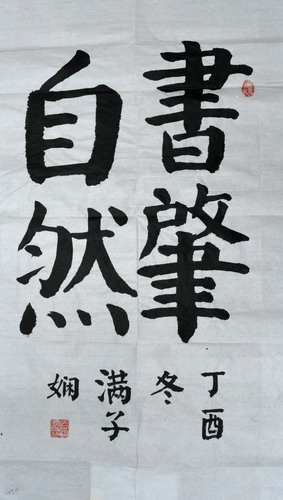 書肇
自然
丁酉
冬
满子
娴